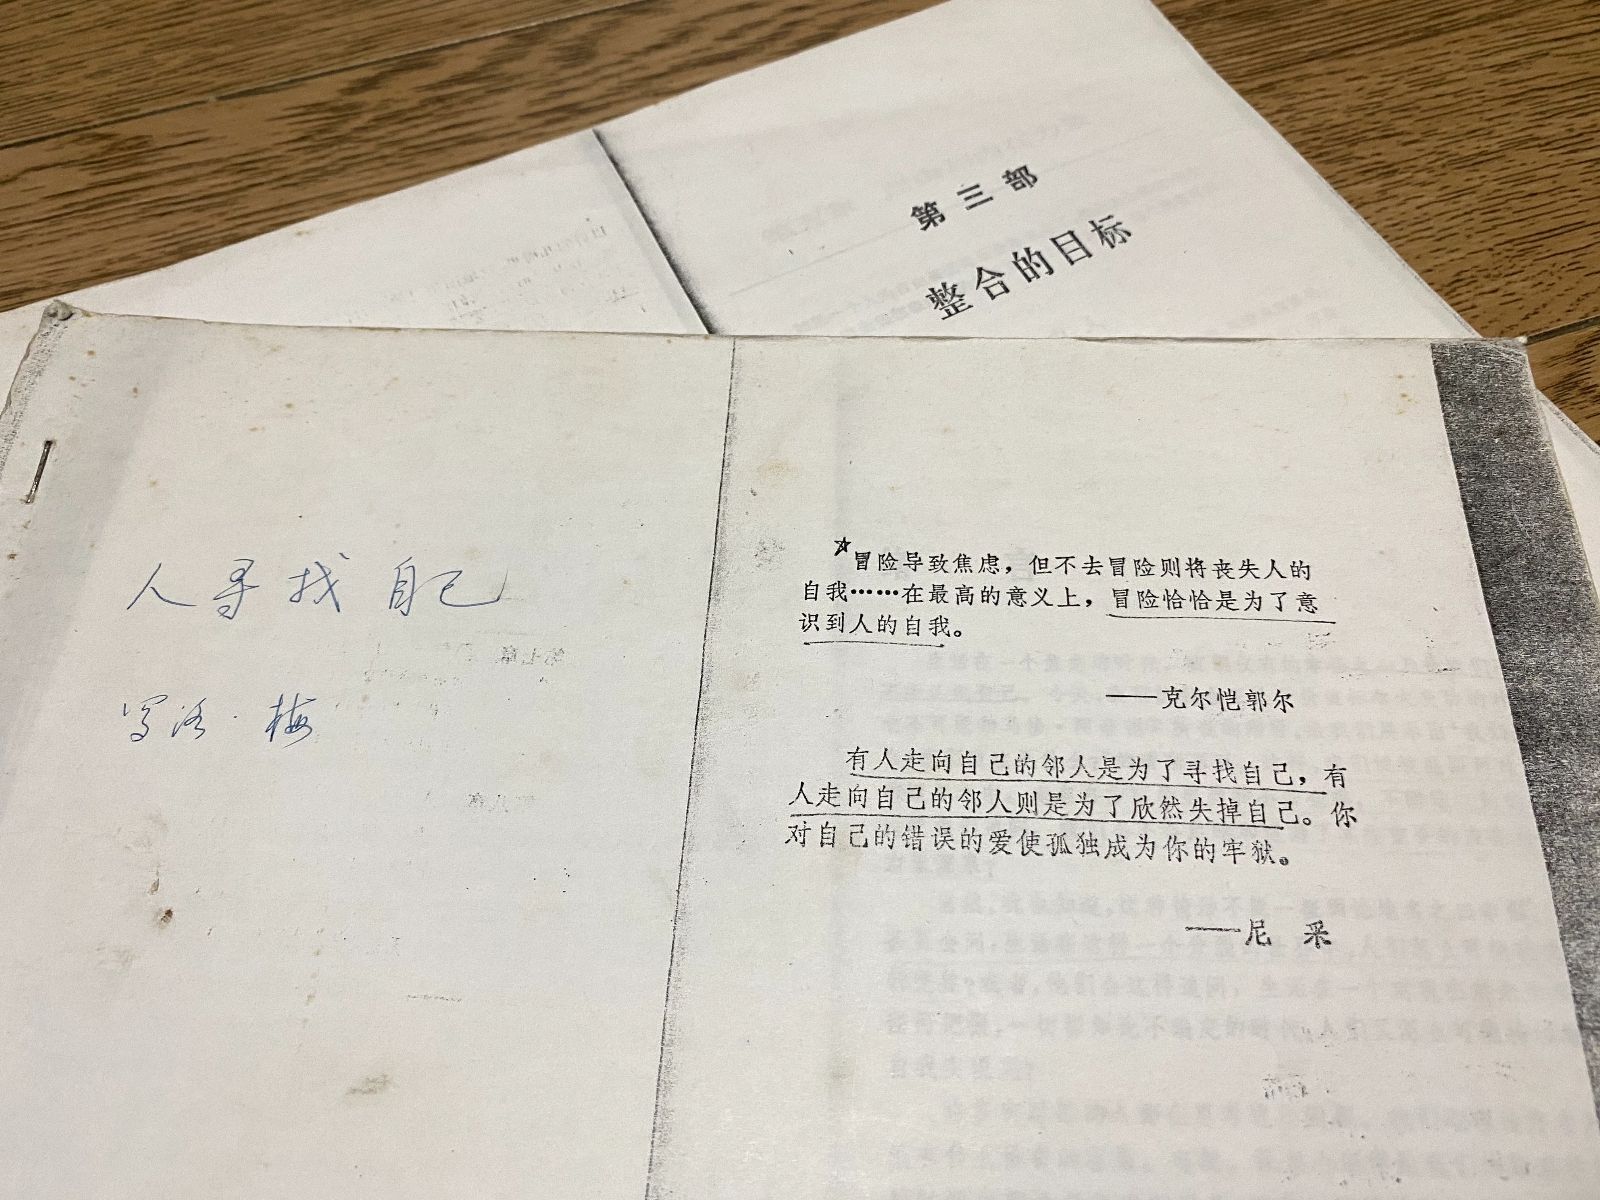 第三部
整合的目标
人寻找自己
罗洛·梅
☆冒险导致焦虑，但不去冒险则将丧失人的
自我……在最高的意义上，冒险恰恰是为了意
识到人的自我。
——克尔恺郭尔
有人走向自己的邻人是为了寻找自己，有
人走向自己的邻人则是为了欣然失掉自己。你
对自己的错误的爱使孤独成为你的牢狱。
——尼 采
第七章